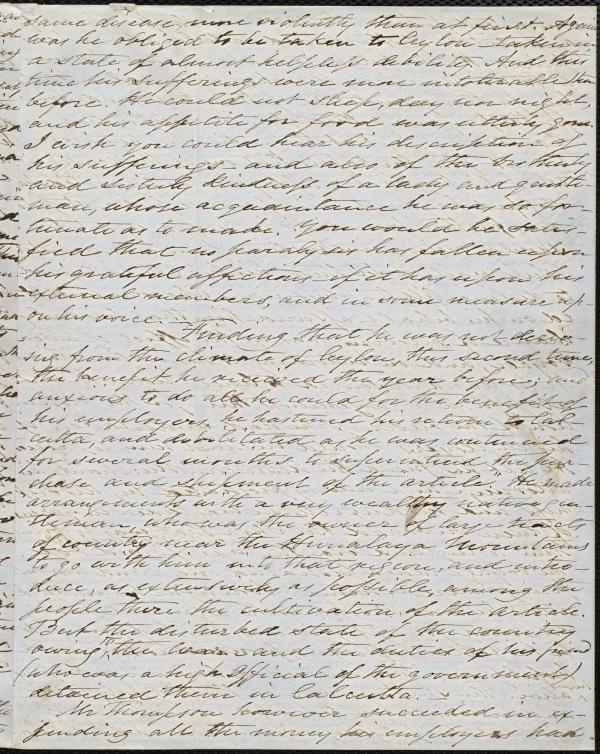 same disease, more violently than at first. Again
was he obliged to be taken to Ceylon—taken in
a state of almost helpless debility. And this
time his sufferings were more intolerable than
before. He could not sleep, day nor night,
and his appetite for food was utterly gone.
I wish you could hear his description of
his sufferings and also of the brotherly
and sisterly kindness of a lady and gentle-
man, whose acquaintance he was so for-
tunate as to make. You would be satis-
fied that no paralysis has fallen upon
his grateful affections if it has upon his
external members, and in some measure up-
on his voice.
Finding that he was not deriv-
ing from the climate of Ceylon, this second time,
the benefit he received the year before; and
anxious to do all he could for the benefit of
his employers, he hastened his return to Cal-
cutta, and debilitated as he was continued
for several months to superintend the pur-
chase and shipment of the article. He made
arrangements with a very wealthy native gen-
tleman, who was the owner of large tracts
of country near the Himalaya Mountains
to go with him into that region, and intro-
duce, as extensively as possible, among the
people there the cultivation of the article.
But the disturbed state of the country
owing the war and the duties of his friend
(who was a high official of the government)
detained them in Calcutta.
Mr Thompson however succeeded in ex-
pending all the money his employers had